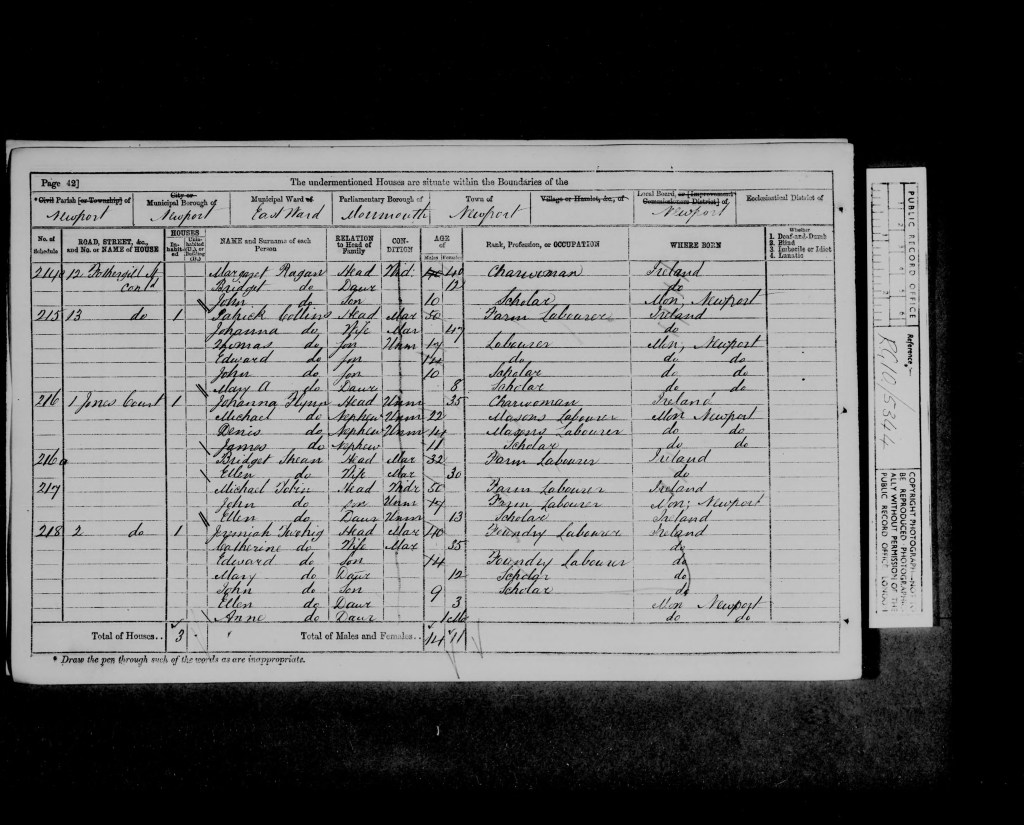 Page 42]
The undermentioned Houses are situate within the Boundaries of the
* Civil Parish [or Township] of
City or Municipal Borough of
Municipal Ward of
Parliamentary Borough of
Town of
Village or Hamlet, &c., of
Local Board, or [Improvement Commissioners District] of
Ecclesiastical District of
Newport Newport East Ward Monmouth Newport Newport
No. of Schedule
ROAD, STREET, &c., and No. or NAME of HOUSE
HOUSES
Inhabited
Uninhabited (U.), or Building (B.)
NAME and Surname of each Person
RELATION to Head of Family
CONDITION
AGE of
Males Females
Rank, Profession, or OCCUPATION
WHERE BORN
Whether
1. Deaf-and-Dumb
2. Blind
3. Imbecile or Idiot
4. Lunatic
214a 12 Fothergill St Margaret Ragan Head Wid. 40 Charwoman Ireland
contd Bridget do Daur 12 do
John do Son 10 Scholar Mon; Newport
215 13 do 1 Patrick Collins Head Mar 50 Farm Labourer Ireland
Johanna do Wife Mar 47 do
Thomas do Son Unm 17 Labourer Mon; Newport
Edward do Son 12 do do do
John do Son 10 Scholar do do
Mary A do Daur 8 Scholar do do
216 1 Jones Court 1 Johanna Flynn Head Unm 35 Charwoman Ireland
Michael do Nephew Unm 22 Masons Labourer Mon Newport
Denis do Nephew Unm 14 Masons Labourer do do
James do Nephew 11 Scholar do do
216a Bridget Shean Head Mar 32 Farm Labourer Ireland
Ellen do Wife Mar 30 do
217 Michael Tobin Head Widr 50 Farm Labourer Ireland
John do Son Unm 17 Farm Labourer Mon; Newport
Ellen do Daur Unm 13 Scholar Ireland
218 2 do 1 Jeremiah Twohig Head Mar 40 Foundry Labourer Ireland
Catherine do Wife Mar 35 do
Edward do Son 14 Foundry Labourer do
Mary do Daur 12 Scholar do
John do Son 9 Scholar do
Ellen do Daur 3 Mon Newport
Anne do Daur 1 Mo do do
Total of Houses.. 3 Total of Males and Females.. 14 11
* Draw the pen through such of the words as are inappropriate.
PUBLIC RECORD OFFICE
Reference:-
RG10/5344
COPYRIGHT PHOTOGRAPH-NOT TO
BE REPRODUCED PHOTOGRAPHIC-
ALLY WITHOUT PERMISSION OF THE
PUBLIC RECORD OFFICE, LONDON